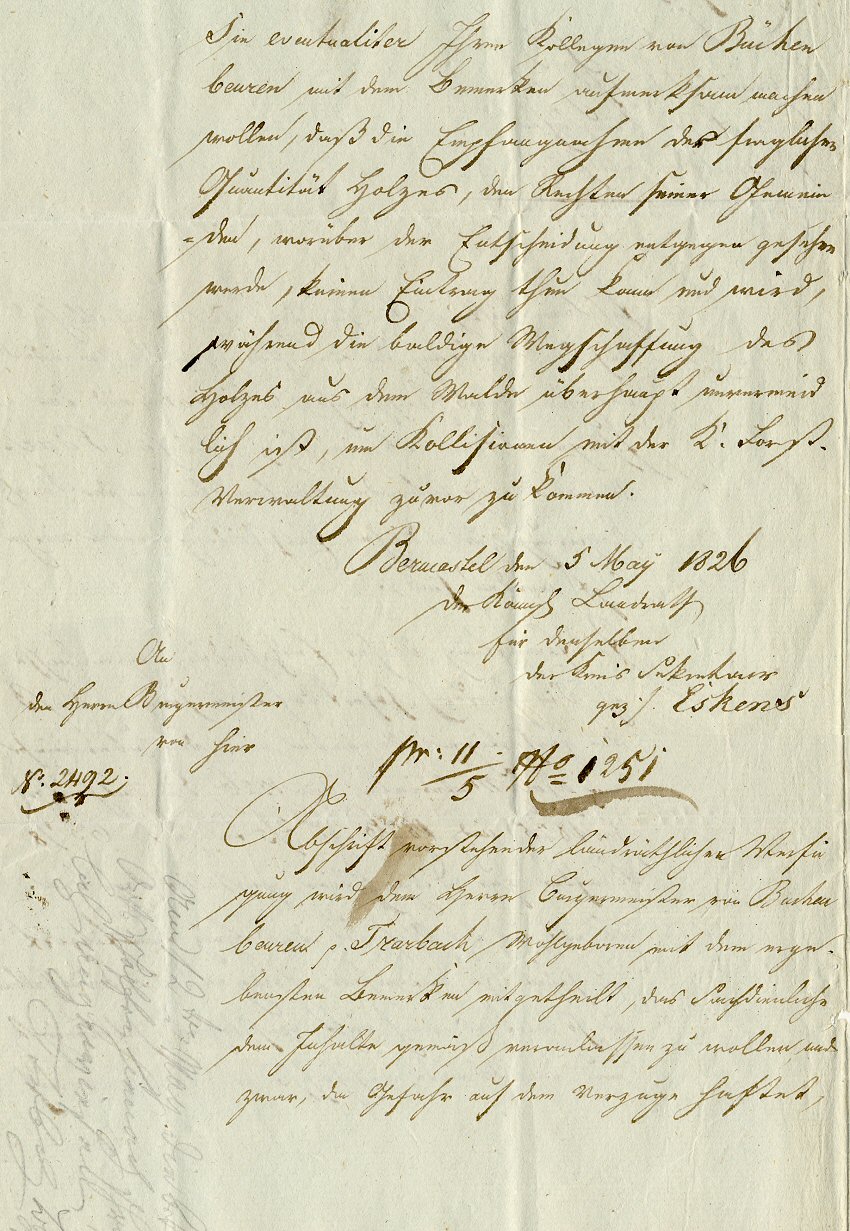 Sie eventualiter Ihren Kollegen von Büchen
beuren mit dem Bemerken aufmerksam machen
wollen, daß die Empfangnahme der fraglichen
Quantität Holzes, den Rechten seiner Gemein
=den, worüber der Entscheidung entgegen gesehen
werde, keinen Eintrag thun kann und wird,
während die baldige Wegschaffung des
Holzes aus dem Walde überhaupt unvermeid
lich ist, um Kollisionen mit der K. Forst-
Verwaltung zuvor zu kommen.
Berncastel den 5 May 1826
der Königl Landrath
für denselben
der Kreis Sekretair
gez. Eskens
An
den Herrn Burgermeister
von hier
No. 2492.
pr: 11/5 No 1251
Abschrift vorstehender landräthlicher Verfü
gung wird dem Herrn Burgermeister von Buchen
beuren p. Trarbach, Wohlgeboren mit dem erge-
bensten Bemerken mitgetheilt, das Sachdienliche
dem Inhalte gemäß veranlassen zu wollen und
zwar, da Gefahr auf dem Verzuge haftet,